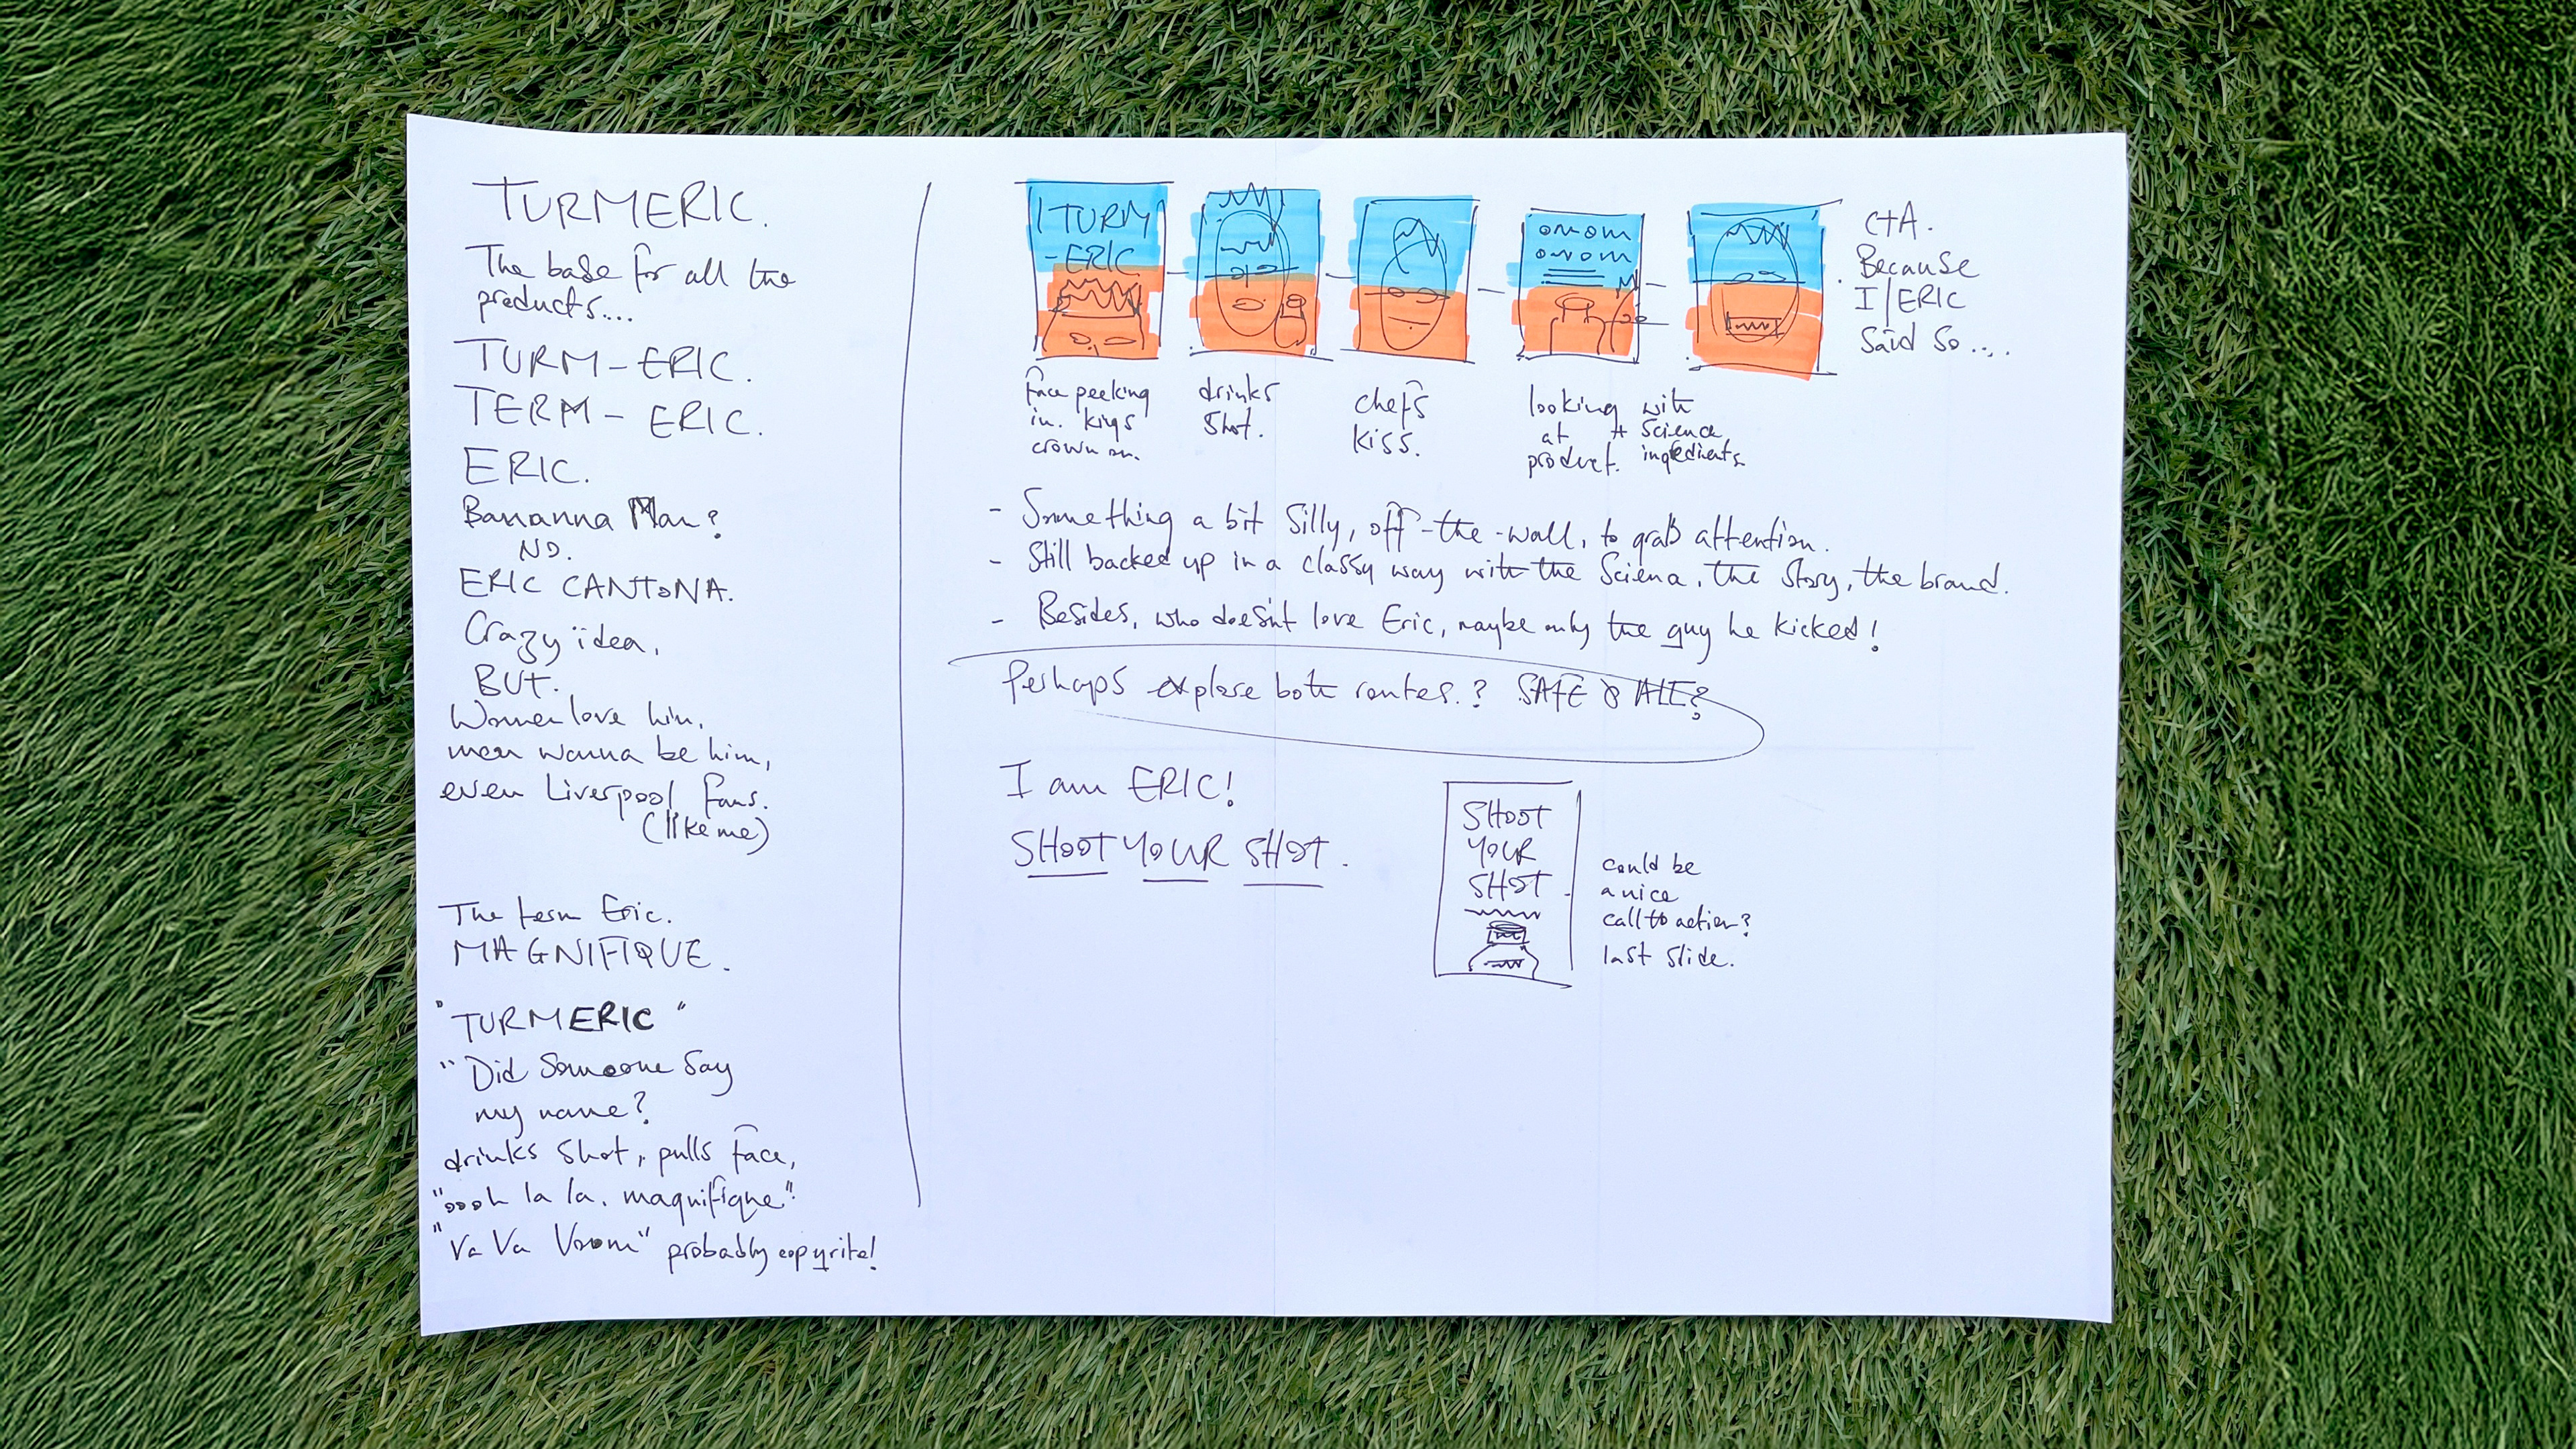 TURMERIC.
The base for all the
products....
TURM-ERIC.
TERM-ERIC.
ERIC.
Bananna Man?
NO.
ERIC CANTONA.
Crazy idea,
BUT.
Women love him,
men wanna be him,
even Liverpool fans.
(like me)
The term Eric.
MAGNIFIQUE.
"TURMERIC"
"Did Someone Say
my name?
drinks shot, pulls face,
"oooh la la. magnifique"
"Va Va Vroom" probably copyrite!
TURM
-ERIC
face peeking
in. kings
crown on.
drinks
shot.
chefs
kiss.
looking
at
product.
with
+ Science
ingredients
CTA.
Because
I/ERIC
Said So....
- Something a bit Silly, off-the-wall, to grab attention.
- Still backed up in a classy way with the Science, the Story, the brand.
- Besides, who doesn't love Eric, maybe only the guy he kicked!
Perhaps explore both routes.? SAFE &
I am ERIC!
SHOOT YOUR SHOT.
SHOOT
YOUR
SHOT
could be
a nice
call to action?
last slide.